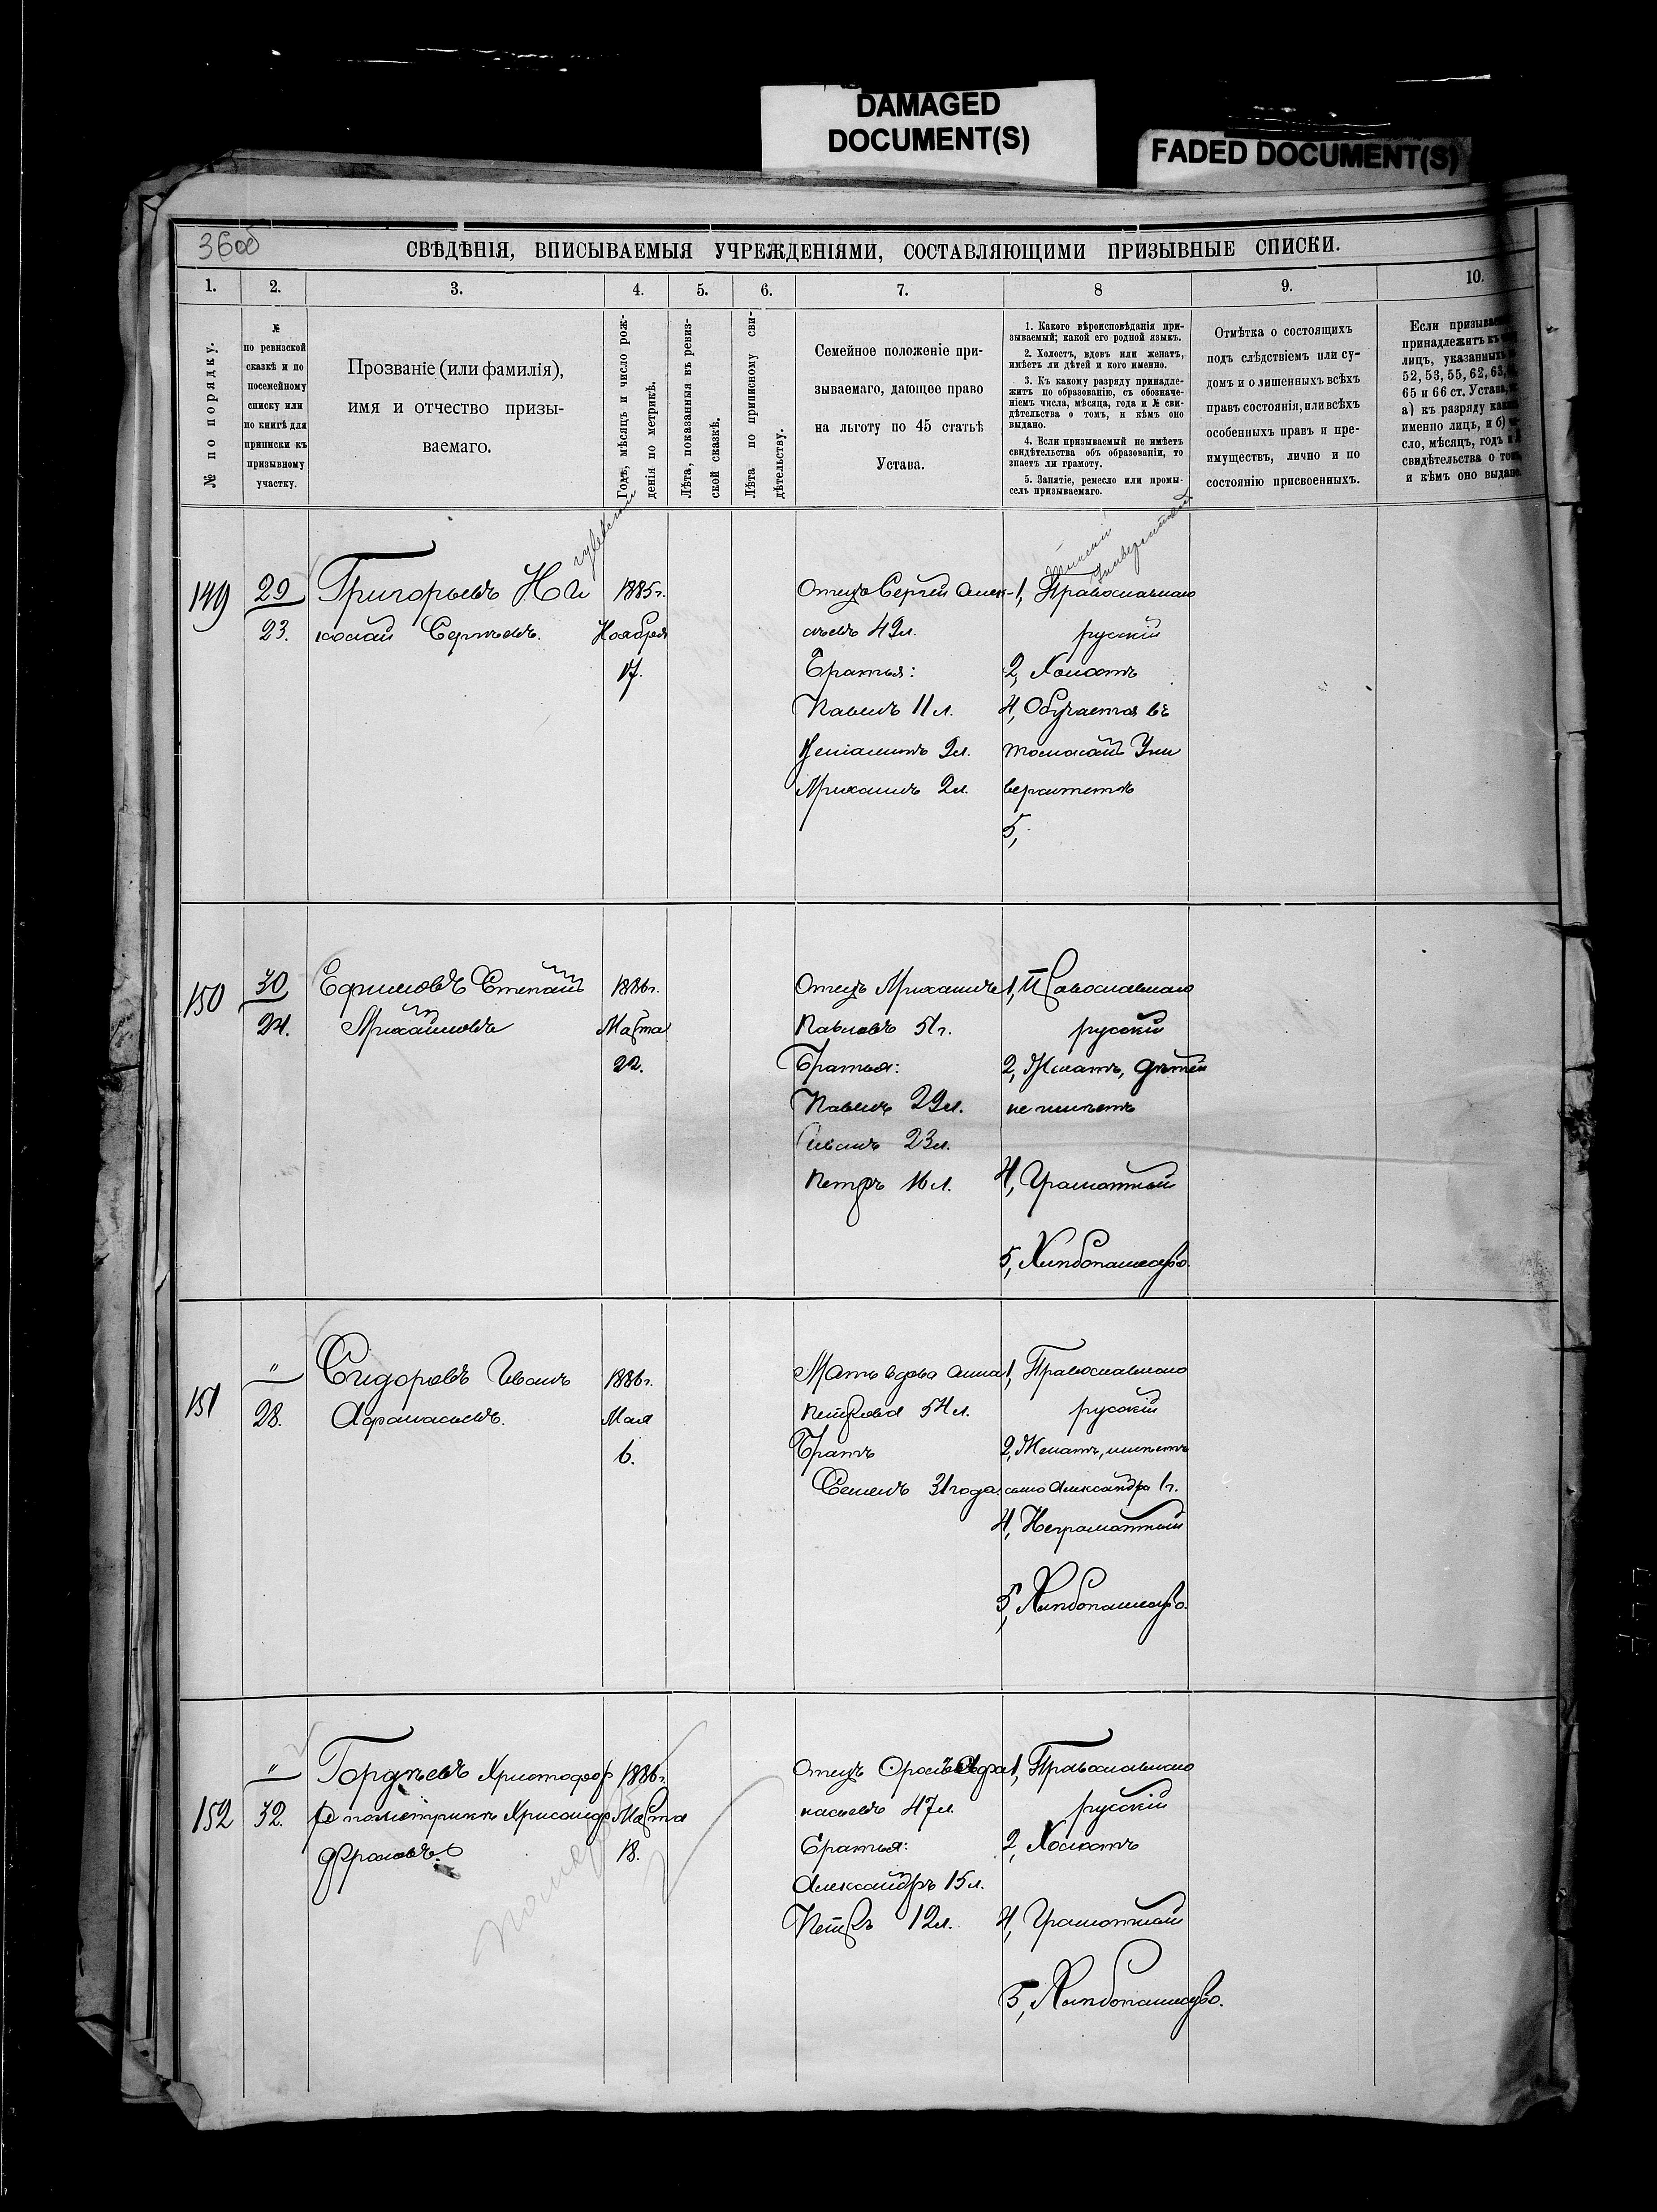 DAMAGED
DOCUMENT(S)
FADED DOCUMENT(S)
36об
СВѢДѢНІЯ, ВПИСЫВАЕМЫЯ УЧРЕЖДЕНІЯМИ, СОСТАВЛЯЮЩИМИ ПРИЗЫВНЫЕ СПИСКИ.
1. 2. 3. 4. 5. 6. 7. 8 9. 10.
№ по порядку.
№
по ревизской
сказкѣ и по
посемейному
списку или
по книгѣ для
приписки къ
призывному
участку.
Прозваніе (или фамилія),
имя и отчество призы-
ваемаго.
Годъ, мѣсяцъ и число рож-
денія по метрикѣ.
Лѣта, показанныя въ ревиз-
ской сказкѣ.
Лѣта по приписному сви-
дѣтельству.
Семейное положеніе при-
зываемаго, дающее право
на льготу по 45 статьѣ
Устава.
1. Какого вѣроисповѣданія при-
зываемый; какой его родной языкъ.
2. Холостъ, вдовъ или женатъ,
имѣетъ ли дѣтей и кого именно.
3. Къ какому разряду принадле-
житъ по образованію, съ обозначе-
ніемъ числа, мѣсяца, года и № сви-
дѣтельства о томъ, и кѣмъ оно
выдано.
4. Если призываемый не имѣетъ
свидѣтельства объ образованіи, то
знаетъ ли грамоту.
5. Занятіе, ремесло или промы-
селъ призываемаго.
Отмѣтка о состоящихъ
подъ слѣдствіемъ или су-
домъ и о лишенныхъ всѣхъ
правъ состоянія, или всѣхъ
особенныхъ правъ и пре-
имуществъ, лично и по
состоянію присвоенныхъ.
Если призывае
принадлежитъ къ
лицъ, указанныхъ
52, 53, 55, 62, 63,
65 и 66 ст. Устава,
а) къ разряду
именно лицъ, и б)
сло, мѣсяцъ, годъ и
свидѣтельства о томъ,
и кѣмъ оно выдано.
149
29
23.
Григорьевъ Ни
колай Сергѣевъ.
1885 г.
Ноября
17.
Отецъ Сергѣй Алек-
сѣевъ 42 л.
Братья:
Павелъ 11 л.
Веніаминъ 9 л.
Михаилъ 2 л.
Томскій
Университетъ
1, Православнаго
русскій
2, Холостъ
4, Обучается въ
томскомъ Уни
верситетѣ
5,
150
30
24.
Ефимовъ Степанъ
Михайловъ
1886 г.
Марта
22.
Отецъ Михаилъ
Павловъ 51 г.
Братья:
Павелъ 29 л.
Иванъ 23 л.
Петръ 16 л.
1, Православнаго
русскій
2, Женатъ, дѣтей
не имѣетъ
4, Грамотный
5, Хлѣбопашество.
151
"
28.
Сидоровъ Иванъ
Афанасьевъ.
1886 г.
Мая
6.
Мать вдова Анна
Петрова 54 л.
Братъ
Семенъ 31 года.
1, Православнаго
русскій
2, Женатъ, имѣетъ
сына Александра 1 г.
4, Неграмотный
5, Хлѣбопашество.
152
"
32.
Гордѣевъ Христофор
(а по метрикѣ Хрисанф
Фроловъ)
1886 г.
Марта
18.
Отецъ Фролъ Афа
насьевъ 47 л.
Братья:
Александръ 15 л.
Петръ 12 л.
1, Православнаго
русскій
2, Холостъ
4, Грамотный
5, Хлѣбопашество.